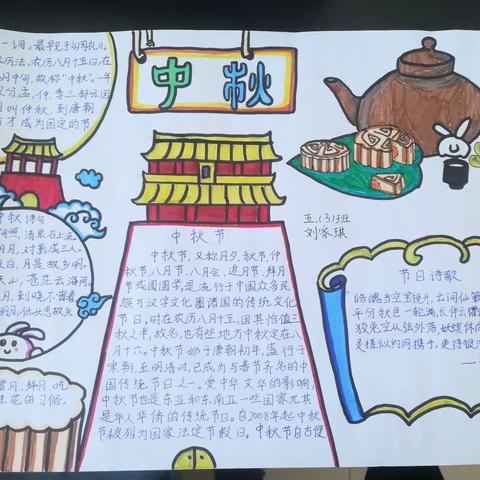 一词，最早见于《周礼》。
历法，农历八月十五日在
月中旬，故称“中秋”。一年
仲、季三部分因
叫仲秋，到唐朝
才成为固定的节
中秋
中秋诗句
照，清泉石上流
明月，对影成三人。
白，月是故乡明。
天山，苍茫云海间
月，低头思故
赏月、拜月、吃
桂花的习俗。
中秋节
中秋节，又称月夕、秋节、仲
秋节、八月节、八月会、追月节、拜月
节或团圆节，是流行于中国众多民
族与汉字文化圈诸国的传统文化
节日，时在农历八月十五，因其恰值三
秋之半，故名，也有些地方中秋定在八
月十六。中秋节始于唐朝初年，盛行于
宋朝，至明清时，已成为与春节齐名的中
国传统节日之一。受中华文华的影响，
中秋节也是东亚和东南亚一些国家尤其
是华人华侨的传统节日。自2008年起中秋
节被列为国家法定节假日。中秋节自古便
五、(3)班
刘家琪
节日诗歌
皓魄当空宝镜升，云间仙籁
平分秋色一轮满，长伴云衢
狡兔空从弦外落，妖蟆休向
灵槎拟约同携手，更待银河